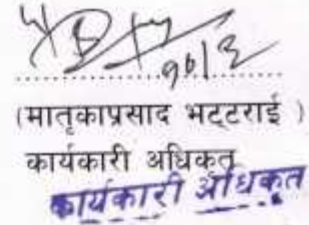 ९०/३
(मातृकाप्रसाद भट्टराई )
कार्यकारी अधिकृत
कार्यकारी अधिकृत